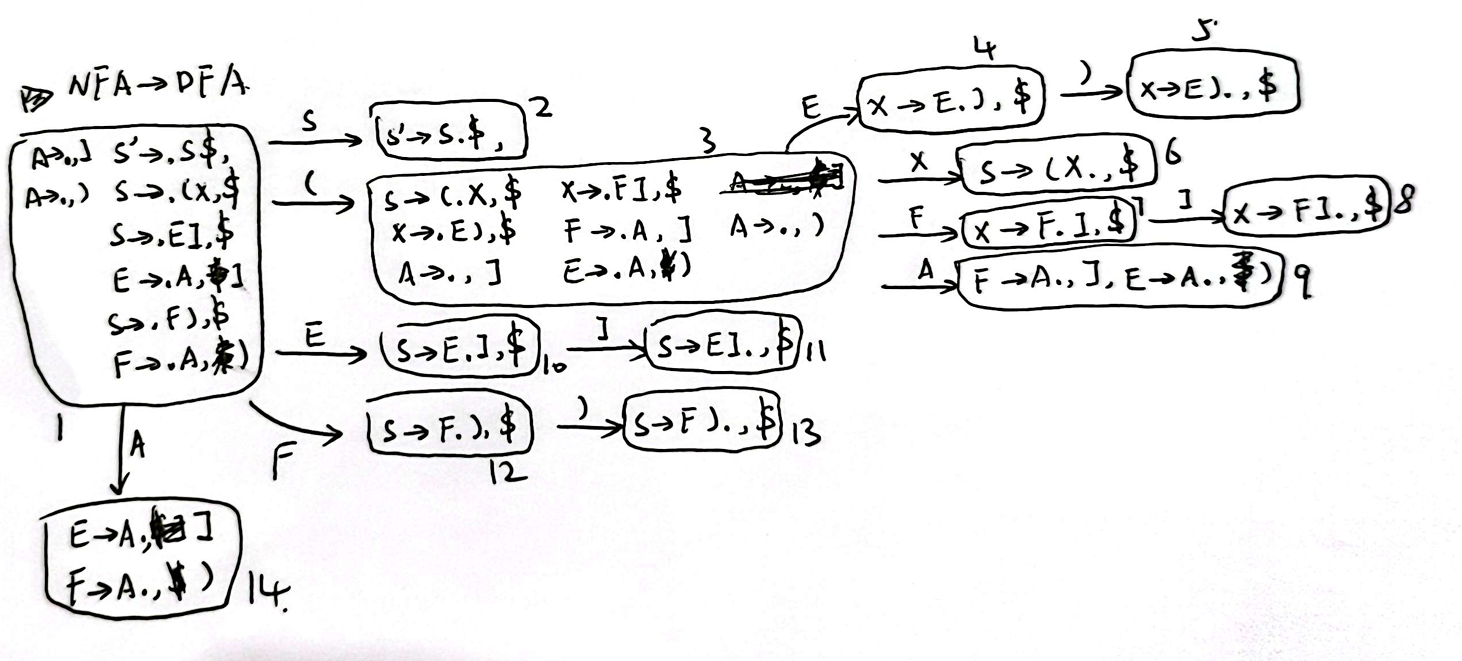 NFA→DFA
A→., ] S'→.S$,
A→., ) S→.(X,$
S→.E],$
E→.A, ]
S→.F),$
F→.A, )
1
S
S'→S.$,
2
(
3
S→(.X,$ X→.F],$
X→.E),$ F→.A, ] A→., )
A→., ] E→.A, )
E
4
X→E.),$
)
5
X→E).,$
X
S→(X.,$
6
F
X→F.],$
7
]
X→F].,$
8
A
F→A., ], E→A., )
9
E
S→E.],$
10
]
S→E].,$
11
F
S→F.),$
12
)
S→F).,$
13
A
E→A., ]
F→A., )
14.